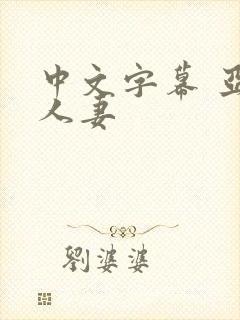 中文字幕 亞
人妻
劉婆婆